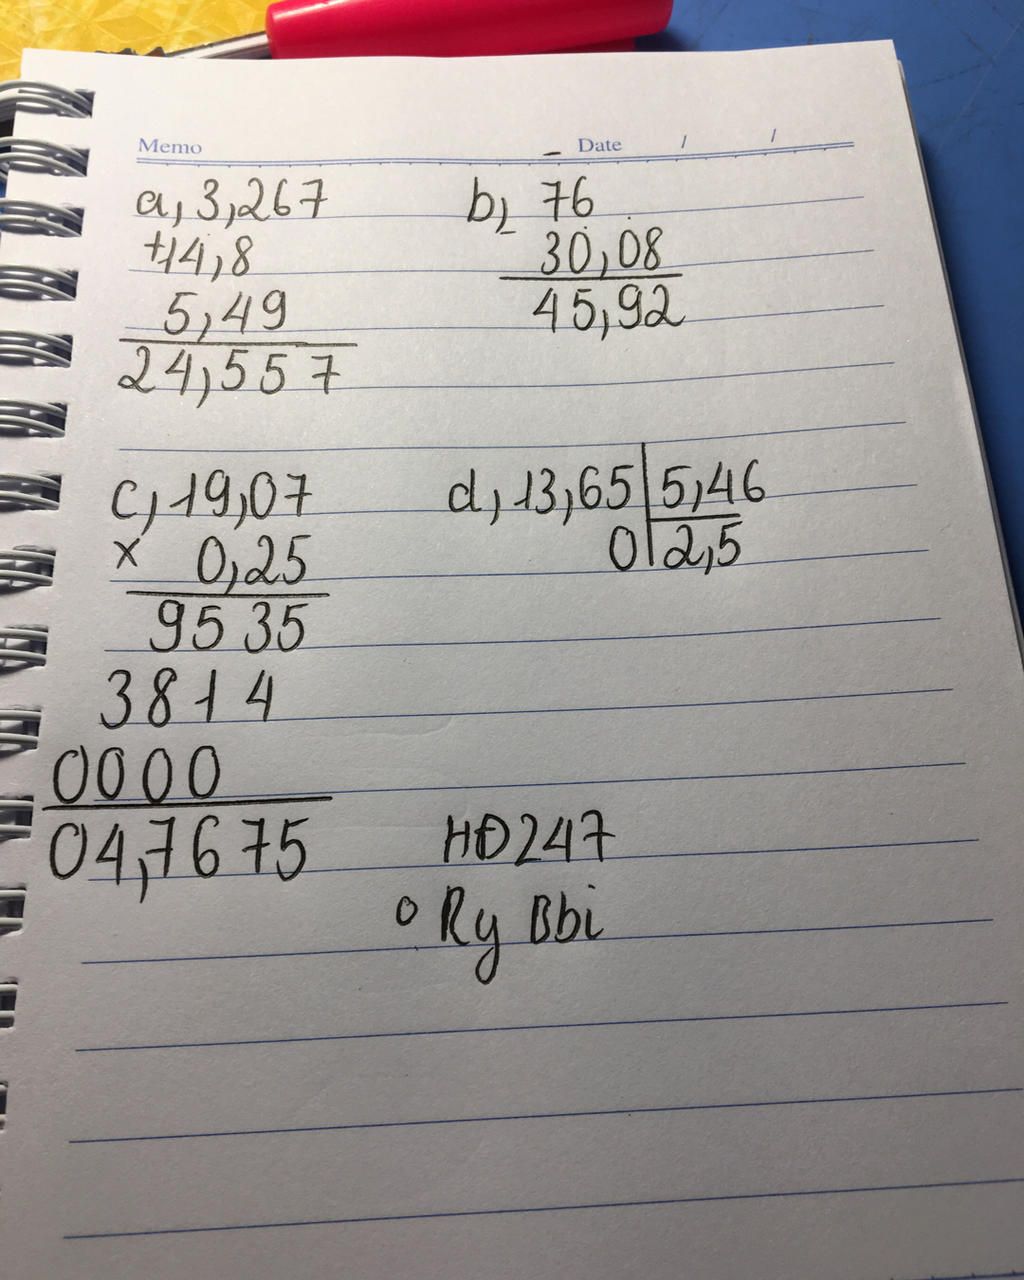 Memo
Date / /
a, 3,267
+14,8
5,49
24,557
b, - 76
30,08
45,92
c, 19,07
x 0,25
9535
3814
0000
04,7675
d, 13,65 5,46
0 2,5
HĐ247
o Ry Bbi